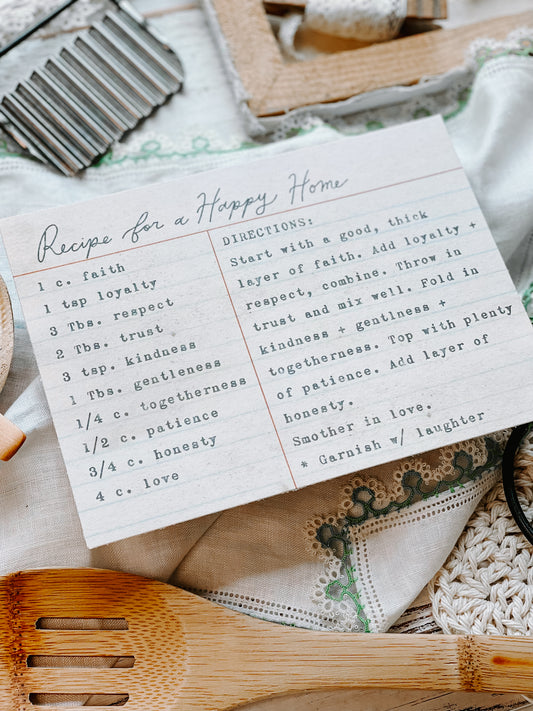 Recipe for a Happy Home
1 c. faith
1 tsp loyalty
3 Tbs. respect
2 Tbs. trust
3 tsp. kindness
1 Tbs. gentleness
1/4 c. togetherness
1/2 c. patience
3/4 c. honesty
4 c. love
DIRECTIONS:
Start with a good, thick
layer of faith. Add loyalty +
respect, combine. Throw in
trust and mix well. Fold in
kindness + gentlness +
togetherness. Top with plenty
of patience. Add layer of
honesty.
Smother in love.
* Garnish w/ laughter